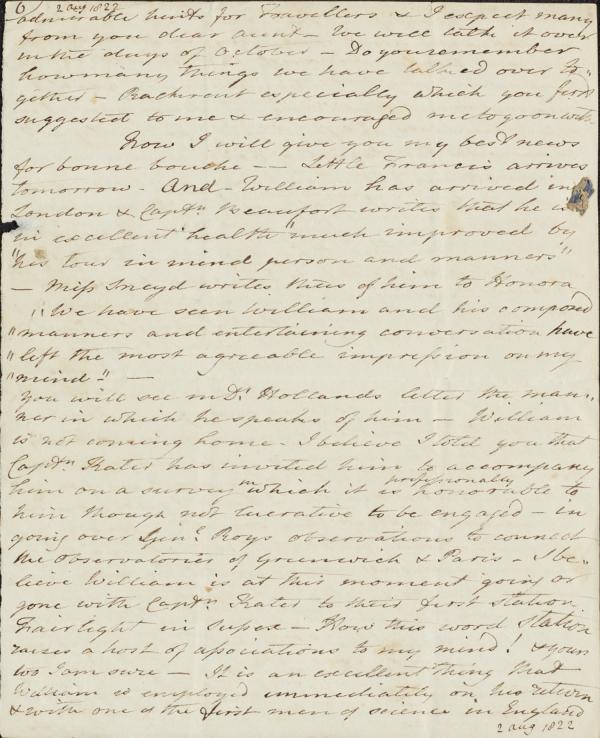 6 2 Aug 1822
admirable hints for Travellers & I expect many
from you dear aunt – We will talk it over
in the days of October – Do you remember
how many things we have talked over to"
gether – Rackrent especially which you first
suggested to me & encouraged me to go on with
Now I will give you my best news
for bonne bouche –– Little Francis arrives
tomorrow – And – William has arrived in
London & Captn. Beaufort writes that he is
"in excellent health "much improved by
"his tour in mind person and manners"
– Miss Sneyd writes thus of him to Honora
"We have seen William and his composed
"manners and entertaining conversation have
"left the most agreeable impression on my
"mind" –
You will see in Dr Hollands letter the man"
ner in which he speaks of him – William
is not coming home – I believe I told you that
Captn. Kater has invited him to accompany
him on a survey in which it is professionally honorable to
him though not lucrative to be engaged – in
going over Genl Roys observations to connect
the observatories of Greenwich & Paris – I be"
lieve William is at this moment going or
gone with Captn. Kater to their first station
Fairlight in Sussex – How this word station
raises a host of associations to my mind! & yours
too I am sure – It is an excellent thing that
William is employed immediately on his return
& with one of the first men of science in England
2 Aug 1822